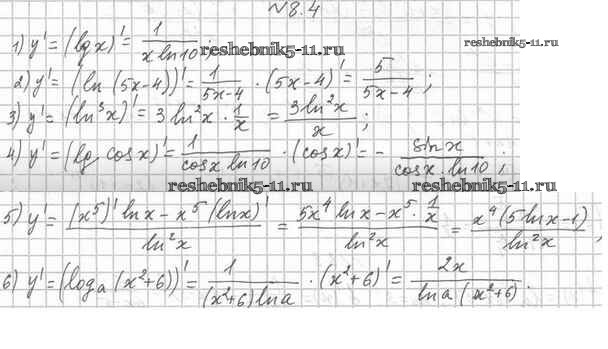 №8.4
1) y' = (lg x)' = 1/(x ln10);
reshebnik5-11.ru
2) y' = (ln (5x-4))' = 1/(5x-4) · (5x-4)' = 5/(5x-4);
3) y' = (ln³x)' = 3 ln²x · 1/x = 3 ln²x/x;
reshebnik5-11.ru
4) y' = (lg cosx)' = 1/(cosx ln10) · (cosx)' = - sinx/(cosx · ln10);
reshebnik5-11.ru reshebnik5-11.ru
5) y' = ((x⁵)' lnx - x⁵ (lnx)')/ln²x = (5x⁴ lnx - x⁵ · 1/x)/ln²x = x⁴(5lnx-1)/ln²x,
6) y' = (logₐ (x²+6))' = 1/((x²+6) lna) · (x²+6)' = 2x/(lna (x²+6)).